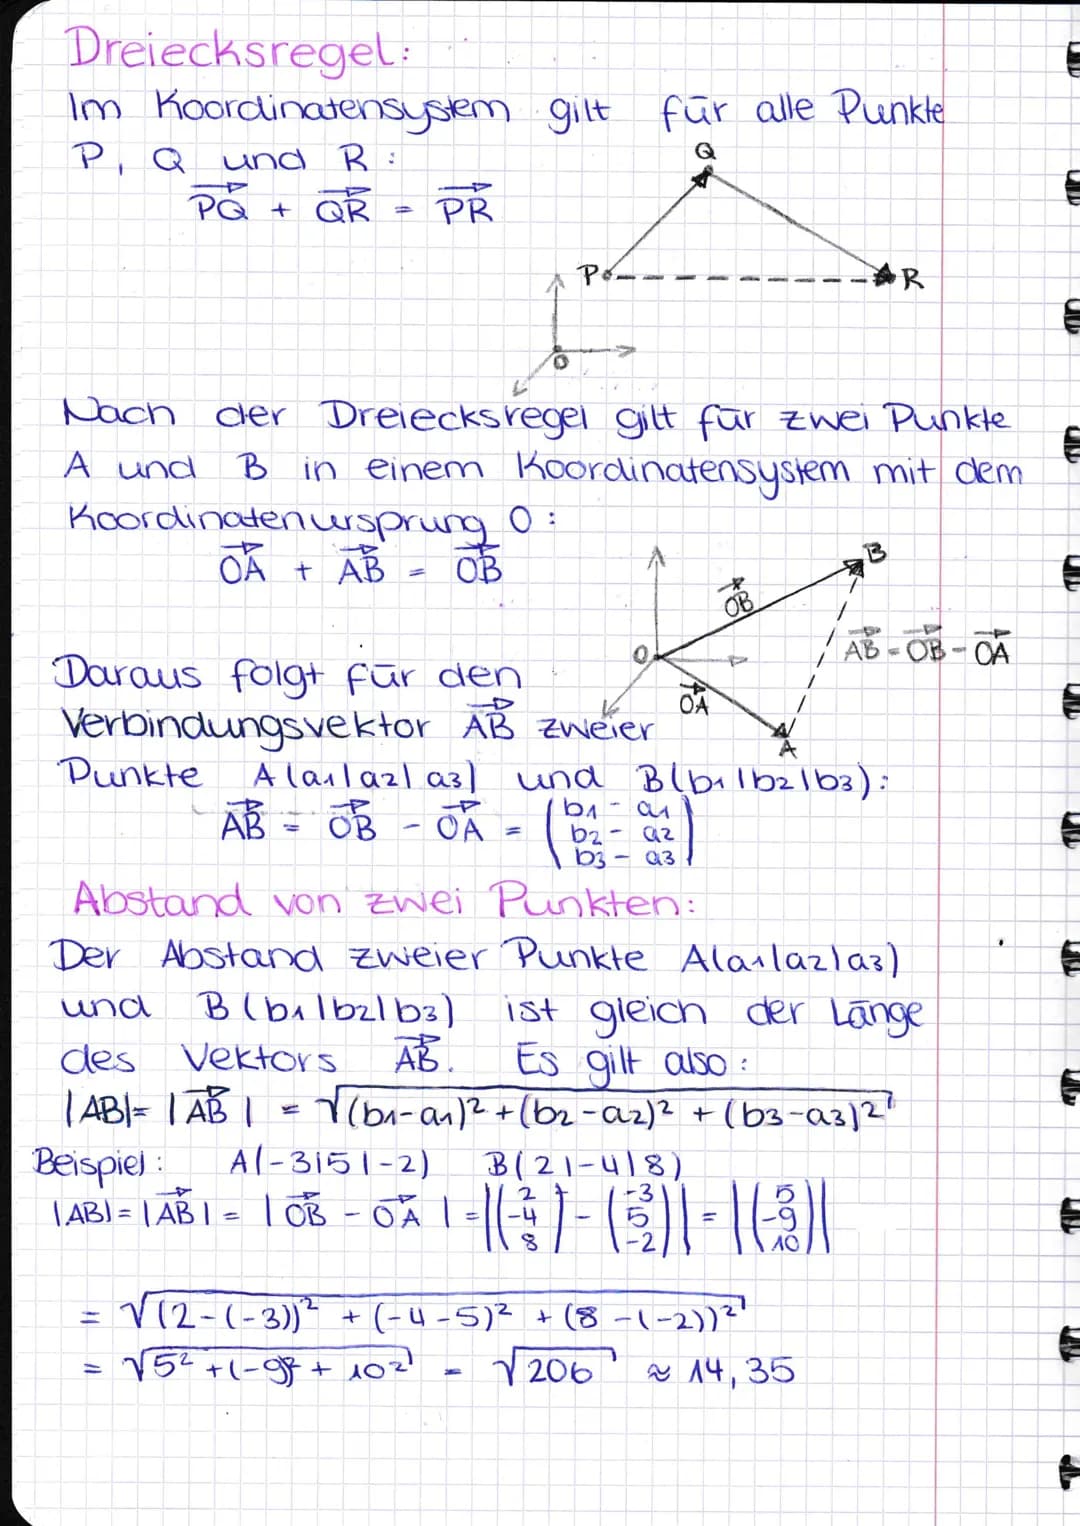 Dreiecksregel:
Im Koordinatensystem gilt für alle Punkte
P, Q und R:
Q
$\overrightarrow{PQ} + \overrightarrow{QR} = \overrightarrow{PR}$
P
R
O
Nach der Dreiecksregel gilt für zwei Punkte
A und B in einem Koordinatensystem mit dem
Koordinatenursprung O:
$\overrightarrow{OA} + \overrightarrow{AB} = \overrightarrow{OB}$
B
$\overrightarrow{OB}$
O
$\overrightarrow{AB} = \overrightarrow{OB} - \overrightarrow{OA}$
$\overrightarrow{OA}$
A
Daraus folgt für den
Verbindungsvektor $\overrightarrow{AB}$ zweier
Punkte A(a₁|a₂|a₃) und B(b₁|b₂|b₃):
$\overrightarrow{AB} = \overrightarrow{OB} - \overrightarrow{OA} = \begin{pmatrix} b_1 - a_1 \\ b_2 - a_2 \\ b_3 - a_3 \end{pmatrix}$
Abstand von zwei Punkten:
Der Abstand zweier Punkte A(a₁|a₂|a₃)
und B(b₁|b₂|b₃) ist gleich der Länge
des Vektors $\overrightarrow{AB}$. Es gilt also:
$|AB| = |\overrightarrow{AB}| = \sqrt{(b_1-a_1)^2 + (b_2-a_2)^2 + (b_3-a_3)^2}$
Beispiel: A(-3|5|-2) B(2|-4|8)
$|AB| = |\overrightarrow{AB}| = |\overrightarrow{OB} - \overrightarrow{OA}| = \left|\begin{pmatrix} 2 \\ -4 \\ 8 \end{pmatrix} - \begin{pmatrix} -3 \\ 5 \\ -2 \end{pmatrix}\right| = \left|\begin{pmatrix} 5 \\ -9 \\ 10 \end{pmatrix}\right|$
$= \sqrt{(2-(-3))^2 + (-4-5)^2 + (8-(-2))^2}$
$= \sqrt{5^2 + (-9)^2 + 10^2} = \sqrt{206} \approx 14,35$